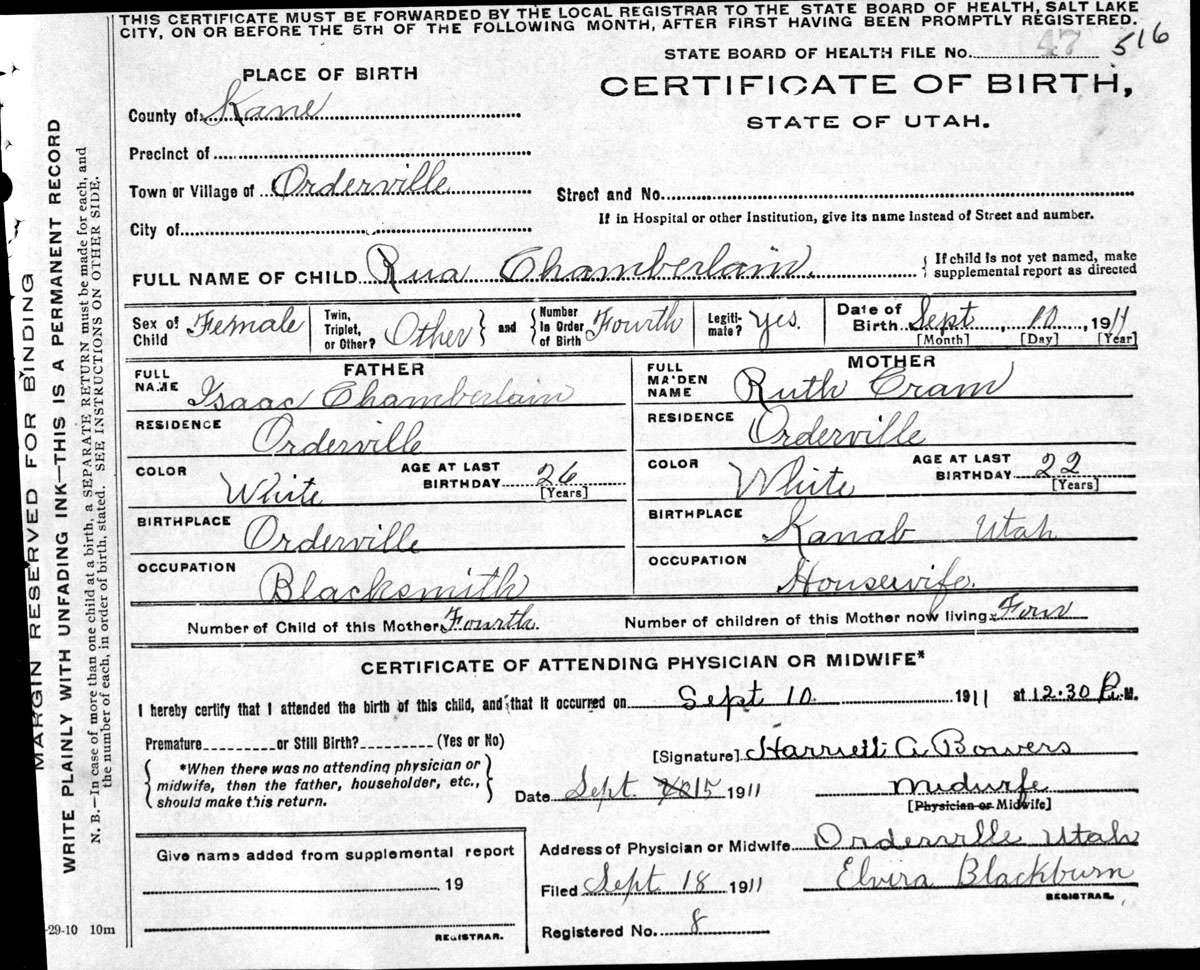 THIS CERTIFICATE MUST BE FORWARDED BY THE LOCAL REGISTRAR TO THE STATE BOARD OF HEALTH, SALT LAKE
CITY, ON OR BEFORE THE 5TH OF THE FOLLOWING MONTH, AFTER FIRST HAVING BEEN PROMPTLY REGISTERED.
STATE BOARD OF HEALTH FILE No. 47 516
PLACE OF BIRTH
CERTIFICATE OF BIRTH,
STATE OF UTAH.
County of Kane
Precinct of
Town or Village of Orderville
Street and No.
If in Hospital or other Institution, give its name Instead of Street and number.
City of
FULL NAME OF CHILD Rua Chamberlain. { If child is not yet named, make
supplemental report as directed
Sex of Child Female
Twin, Triplet, or Other? Other } and { Number In Order of Birth Fourth
Legiti-mate? Yes.
Date of Birth Sept, 10, 1911
[Month] [Day] [Year]
FATHER
FULL NAME Isaac Chamberlain
RESIDENCE Orderville
COLOR White AGE AT LAST BIRTHDAY 26 [Years]
BIRTHPLACE Orderville
OCCUPATION Blacksmith
MOTHER
FULL MAIDEN NAME Ruth Cram
RESIDENCE Orderville
COLOR White AGE AT LAST BIRTHDAY 22 [Years]
BIRTHPLACE Kanab Utah
OCCUPATION Housewife.
Number of Child of this Mother Fourth. Number of children of this Mother now living Four
CERTIFICATE OF ATTENDING PHYSICIAN OR MIDWIFE*
I hereby certify that I attended the birth of this child, and that it occurred on Sept 10 1911 at 12.30 P.M.
Premature or Still Birth? (Yes or No)
{ *When there was no attending physician or
midwife, then the father, householder, etc.,
should make this return. }
[Signature] Harriett A Bowers
Date Sept. 15 1911
Midwife
[Physician or Midwife]
Address of Physician or Midwife Orderville Utah
Filed Sept 18 1911 Elvira Blackburn
REGISTRAR.
Registered No. 8
Give name added from supplemental report
19
REGISTRAR.
-29-10 10m
MARGIN RESERVED FOR BINDING
WRITE PLAINLY WITH UNFADING INK—THIS IS A PERMANENT RECORD
N. B.—In case of more than one child at a birth, a SEPARATE RETURN must be made for each, and
the number of each, in order of birth, stated. SEE INSTRUCTIONS ON OTHER SIDE.